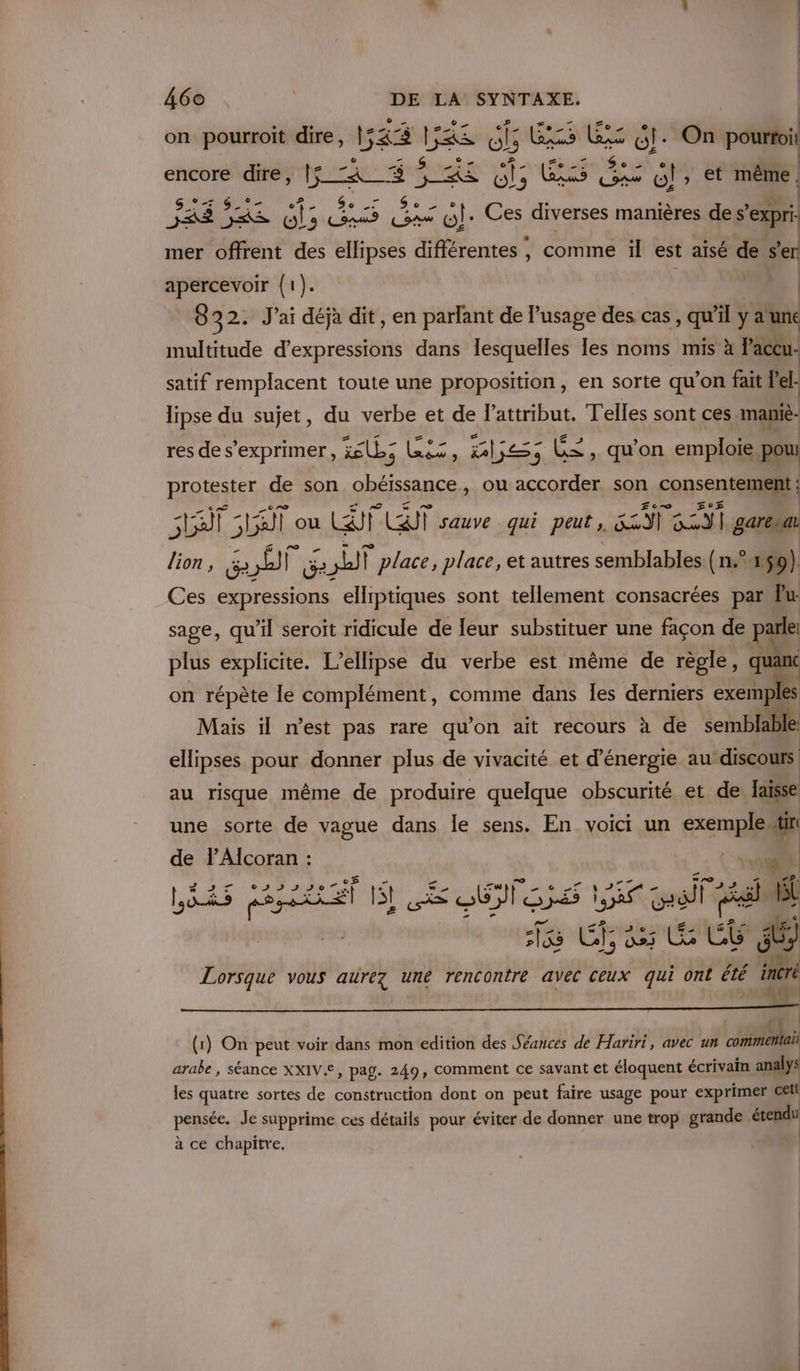 460 DE LA SYNTAXE.
on pourroit dire, إِنْ سَيْفًا فَسَيْفًا وَإِنْ خَنْجَرًا فَخَنْجَرًا. On pourroit
encore dire, إِنْ سَيْفٌ فَسَيْفًا وَإِنْ خَنْجَرٌ فَخَنْجَرًا, et même,
إِنْ سَيْفٌ فَسَيْفٌ وَإِنْ خَنْجَرٌ فَخَنْجَرٌ. Ces diverses manières de s'expri-
mer offrent des ellipses différentes, comme il est aisé de s'en
apercevoir (1).
832. J'ai déjà dit, en parlant de l'usage des cas, qu'il y a une
multitude d'expressions dans lesquelles les noms mis à l'accu-
satif remplacent toute une proposition, en sorte qu'on fait l'el-
lipse du sujet, du verbe et de l'attribut. Telles sont ces maniè-
res de s'exprimer, سَمْعًا وَطَاعَةً, حُبًّا وَكَرَامَةً, qu'on emploie pour
protester de son obéissance, ou accorder son consentement;
اَلْفِرَارَ اَلْفِرَارَ ou اَلنَّجَا اَلنَّجَا sauve qui peut, اَلْأَسَدَ اَلْأَسَدَ gare au
lion, اَلطَّرِيقَ اَلطَّرِيقَ place, place, et autres semblables (n.° 159).
Ces expressions elliptiques sont tellement consacrées par l'u-
sage, qu'il seroit ridicule de leur substituer une façon de parler
plus explicite. L'ellipse du verbe est même de règle, quand
on répète le complément, comme dans les derniers exemples
Mais il n'est pas rare qu'on ait recours à de semblables
ellipses pour donner plus de vivacité et d'énergie au discours
au risque même de produire quelque obscurité et de laisser
une sorte de vague dans le sens. En voici un exemple tiré
de l'Alcoran :
فَإِذَا لَقِيتُمُ ٱلَّذِينَ كَفَرُوا فَضَرْبَ ٱلرِّقَابِ حَتَّى إِذَا أَثْخَنْتُمُوهُمْ فَشُدُّوا
ٱلْوَثَاقَ فَإِمَّا مَنًّا بَعْدُ وَإِمَّا فِدَاءً
Lorsque vous aurez une rencontre avec ceux qui ont été incré
(1) On peut voir dans mon edition des Séances de Hariri, avec un commentaire
arabe, séance XXIV.e, pag. 249, comment ce savant et éloquent écrivain analys
les quatre sortes de construction dont on peut faire usage pour exprimer cette
pensée. Je supprime ces détails pour éviter de donner une trop grande étendu
à ce chapitre.